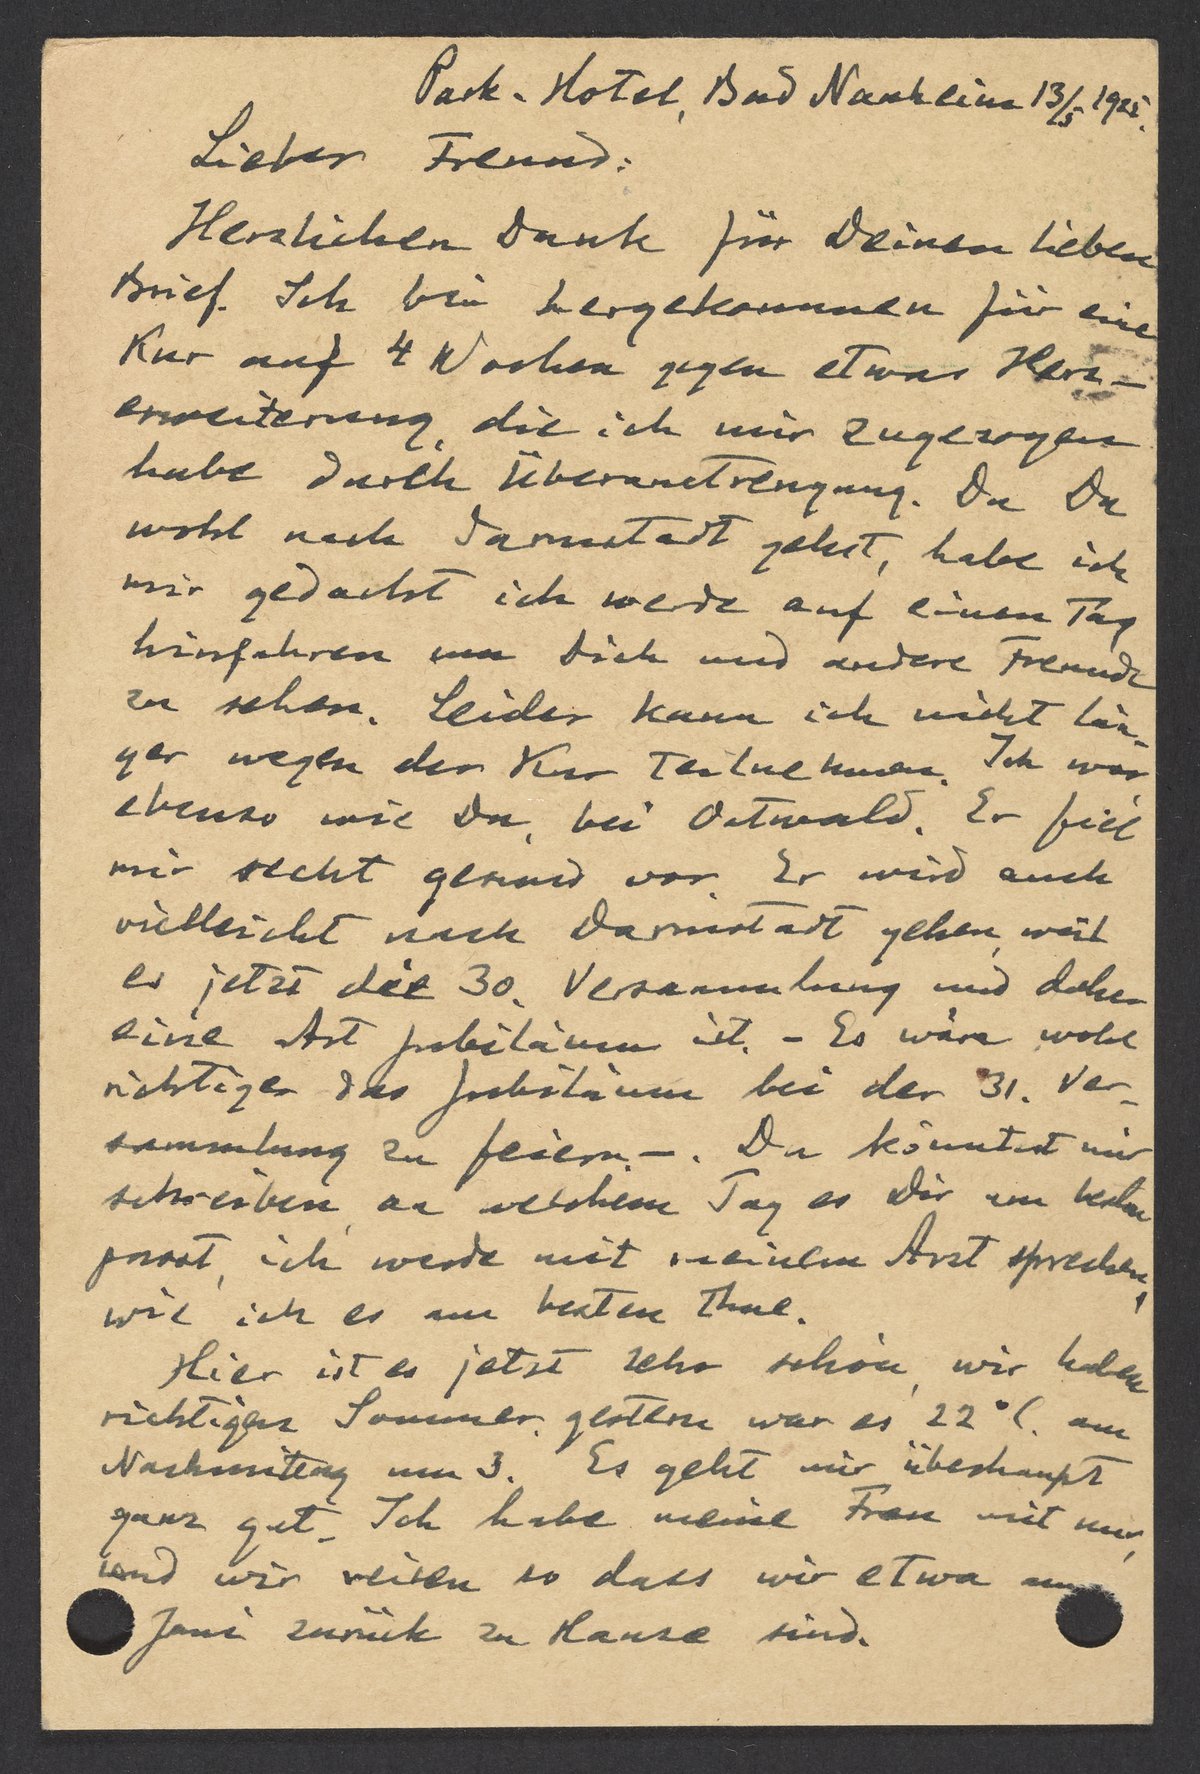 Park-Hotel, Bad Nauheim 13/5 1925.
Lieber Freund:
Herzlichen Dank für Deinen lieben
Brief. Ich bin hergekommen für eine
Kur auf 4 Wochen gegen etwas Herz-
erweiterung, die ich mir zugezogen
habe durch Überanstrengung. Da Du
wohl nach Darmstadt gehst, habe ich
mir gedacht ich werde auf einen Tag
hinfahren um Dich und andere Freunde
zu sehen. Leider kann ich nicht län-
ger wegen der Kur teilnehmen. Ich war,
ebenso wie Du, bei Ostwald. Er fiel
mir recht gesund vor. Er wird auch
vielleicht nach Darmstadt gehen, weil
es jetzt die 30. Versammlung und daher
eine Art Jubiläum ist. - Es wäre wohl
richtiger das Jubiläum bei der 31. Ver-
sammlung zu feiern. -. Du könntest mir
schreiben, an welchem Tag es Dir am besten
passt, ich werde mit meinem Arzt sprechen,
wie ich es am besten thue.
Hier ist es jetzt sehr schön, wir haben
richtigen Sommer, gestern war es 22°C. am
Nachmittag um 3. Es geht mir überhaupt
ganz gut. Ich habe meine Frau mit mir,
und wir reisen so dass wir etwa
Juni zurück zu Hause sind.